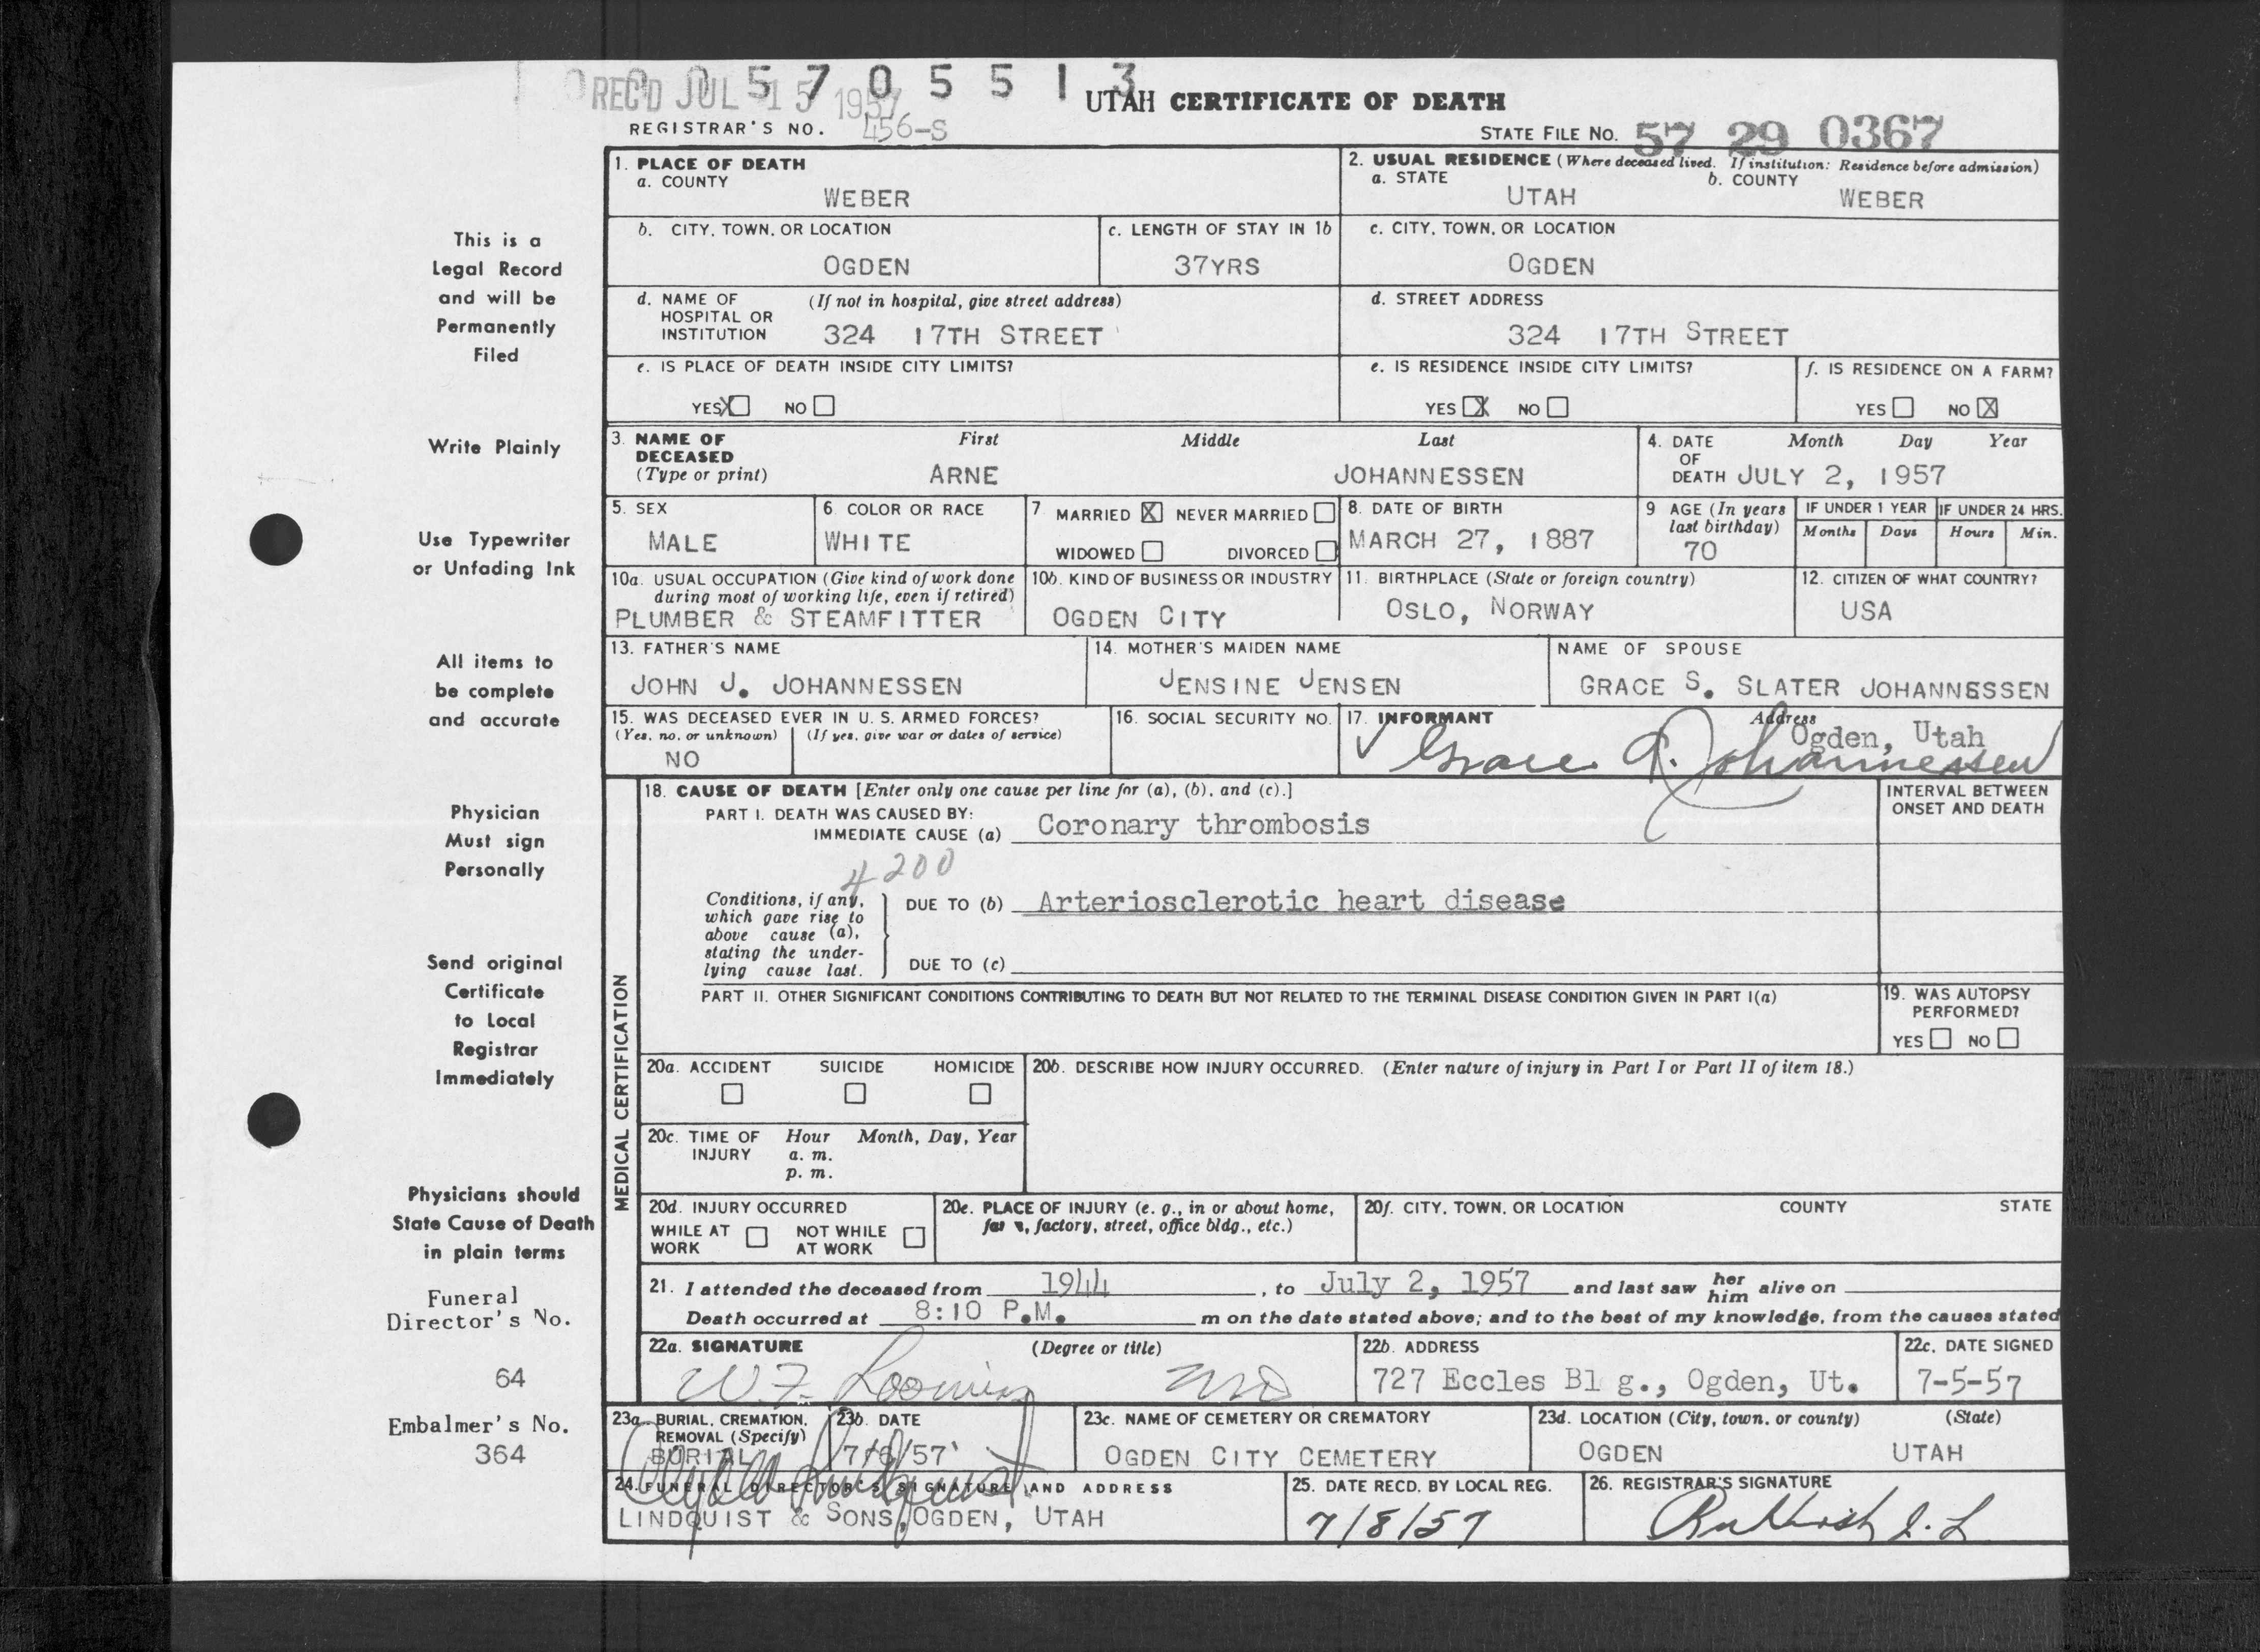 005705513
REC'D JUL 15 1957
UTAH CERTIFICATE OF DEATH
REGISTRAR'S NO. 456-S
STATE FILE NO. 57 29 0367
This is a
Legal Record
and will be
Permanently
Filed
Write Plainly
Use Typewriter
or Unfading Ink
All items to
be complete
and accurate
Physician
Must sign
Personally
Send original
Certificate
to Local
Registrar
Immediately
Physicians should
State Cause of Death
in plain terms
Funeral
Director's No.
64
Embalmer's No.
364
1. PLACE OF DEATH
a. COUNTY
WEBER
2. USUAL RESIDENCE (Where deceased lived. If institution: Residence before admission)
a. STATE b. COUNTY
UTAH WEBER
b. CITY, TOWN, OR LOCATION
OGDEN
c. LENGTH OF STAY IN 1b
37YRS
c. CITY, TOWN, OR LOCATION
OGDEN
d. NAME OF (If not in hospital, give street address)
HOSPITAL OR
INSTITUTION 324 17TH STREET
d. STREET ADDRESS
324 17TH STREET
e. IS PLACE OF DEATH INSIDE CITY LIMITS?
YES X NO
e. IS RESIDENCE INSIDE CITY LIMITS?
YES X NO
f. IS RESIDENCE ON A FARM?
YES NO X
3. NAME OF First Middle Last
DECEASED
(Type or print) ARNE JOHANNESSEN
4. DATE Month Day Year
OF
DEATH JULY 2, 1957
5. SEX
MALE
6. COLOR OR RACE
WHITE
7. MARRIED X NEVER MARRIED
WIDOWED DIVORCED
8. DATE OF BIRTH
MARCH 27, 1887
9 AGE (In years
last birthday)
70
IF UNDER 1 YEAR IF UNDER 24 HRS.
Months Days Hours Min.
10a. USUAL OCCUPATION (Give kind of work done
during most of working life, even if retired)
PLUMBER & STEAMFITTER
10b. KIND OF BUSINESS OR INDUSTRY
OGDEN CITY
11. BIRTHPLACE (State or foreign country)
OSLO, NORWAY
12. CITIZEN OF WHAT COUNTRY?
USA
13. FATHER'S NAME
JOHN J. JOHANNESSEN
14. MOTHER'S MAIDEN NAME
JENSINE JENSEN
NAME OF SPOUSE
GRACE S. SLATER JOHANNESSEN
15. WAS DECEASED EVER IN U. S. ARMED FORCES?
(Yes, no, or unknown) (If yes, give war or dates of service)
NO
16. SOCIAL SECURITY NO.
17. INFORMANT Address
Ogden, Utah
Grace Johannessen
MEDICAL CERTIFICATION
18. CAUSE OF DEATH [Enter only one cause per line for (a), (b), and (c).]
INTERVAL BETWEEN
ONSET AND DEATH
PART I. DEATH WAS CAUSED BY:
IMMEDIATE CAUSE (a) Coronary thrombosis
4200
Conditions, if any,
which gave rise to
above cause (a),
stating the under-
lying cause last.
DUE TO (b) Arteriosclerotic heart disease
DUE TO (c)
PART II. OTHER SIGNIFICANT CONDITIONS CONTRIBUTING TO DEATH BUT NOT RELATED TO THE TERMINAL DISEASE CONDITION GIVEN IN PART I(a)
19. WAS AUTOPSY
PERFORMED?
YES NO
20a. ACCIDENT SUICIDE HOMICIDE
20b. DESCRIBE HOW INJURY OCCURRED. (Enter nature of injury in Part I or Part II of item 18.)
20c. TIME OF Hour Month, Day, Year
INJURY a. m.
p. m.
20d. INJURY OCCURRED
WHILE AT NOT WHILE
WORK AT WORK
20e. PLACE OF INJURY (e. g., in or about home,
factory, street, office bldg., etc.)
20f. CITY, TOWN, OR LOCATION COUNTY STATE
21. I attended the deceased from 1944, to July 2, 1957 and last saw her him alive on
Death occurred at 8:10 P.M. m on the date stated above; and to the best of my knowledge, from the causes stated
22a. SIGNATURE (Degree or title)
W. F. Loomis MD
22b. ADDRESS
727 Eccles Bl g., Ogden, Ut.
22c. DATE SIGNED
7-5-57
23a. BURIAL, CREMATION,
REMOVAL (Specify)
BURIAL
23b. DATE
7/6/57
23c. NAME OF CEMETERY OR CREMATORY
OGDEN CITY CEMETERY
23d. LOCATION (City, town, or county) (State)
OGDEN UTAH
24. FUNERAL DIRECTOR'S SIGNATURE AND ADDRESS
LINDQUIST & SONS, OGDEN, UTAH
25. DATE RECD. BY LOCAL REG.
7/8/57
26. REGISTRAR'S SIGNATURE